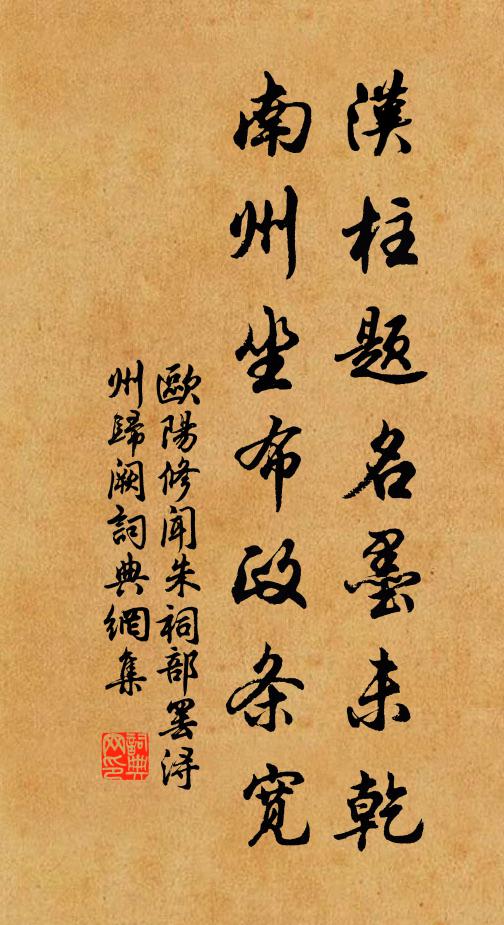 漢柱題名墨未乾
南州坐布政条寬
歐陽修闻朱祠部罢潯
州歸阙詞典網集
詞典
网印